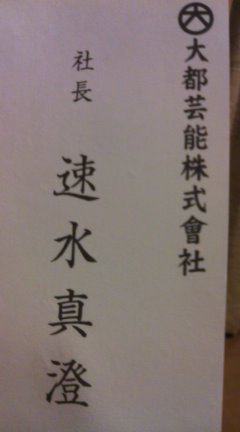 大
大都芸能株式會社
社長
速水真澄